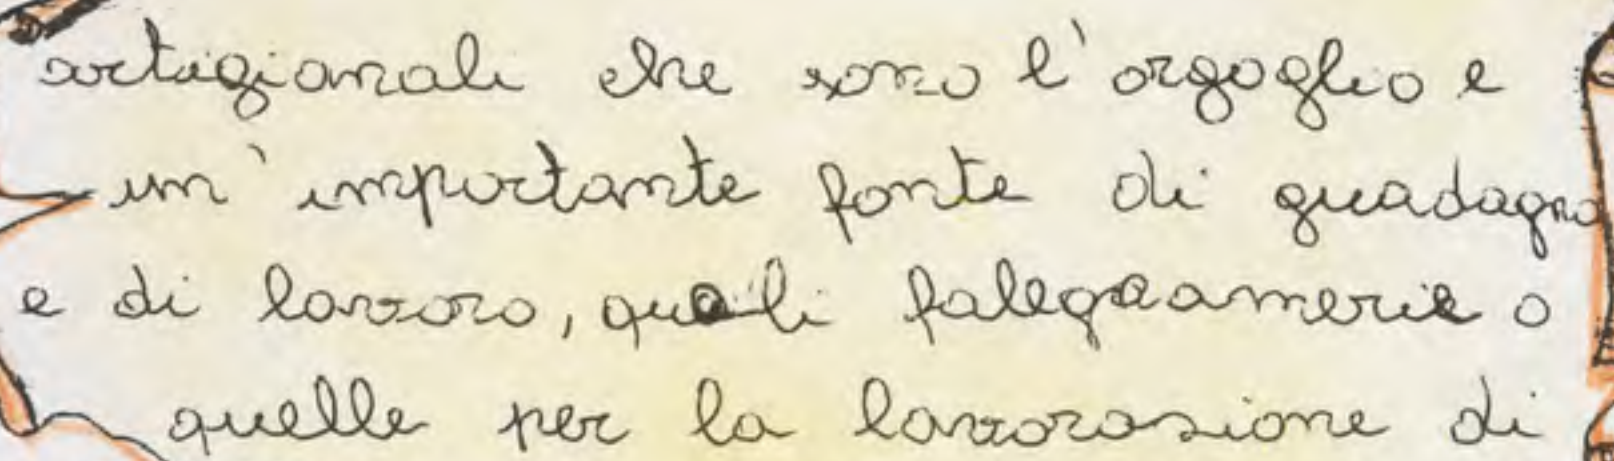 artigianali che sono l'orgoglio e
un'importante fonte di guadagno
e di lavoro, quali falegnamerie o
quelle per la lavorazione di